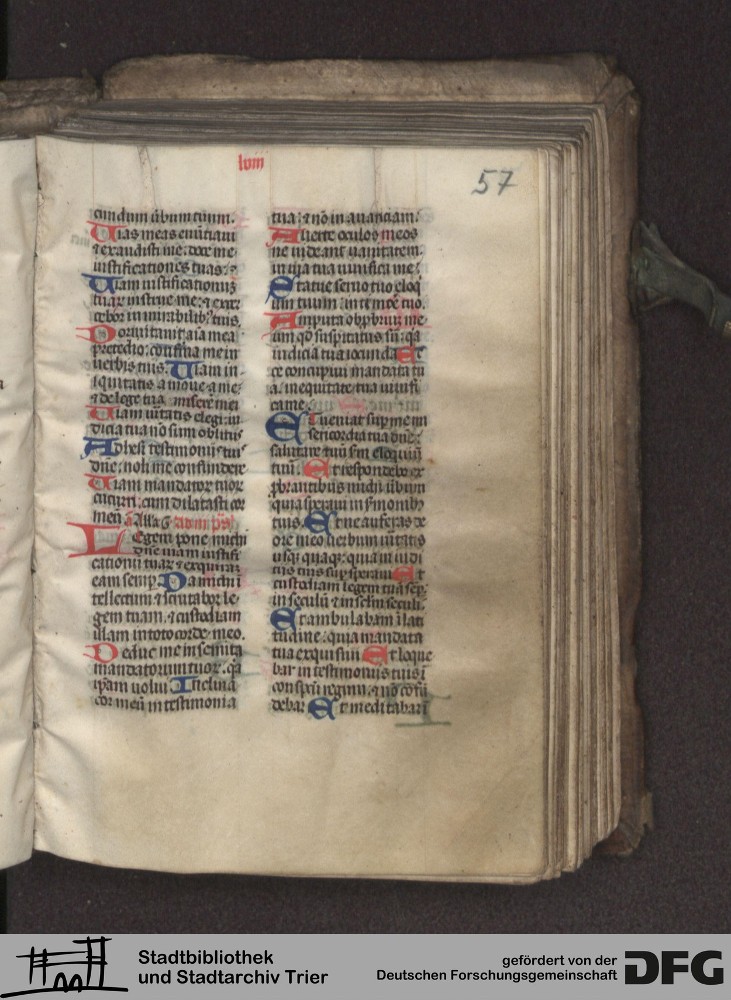 lviii
57
cundum ũbum tuum.
Uias meas enũtiaui
& exaudisti me: doce me
iustificationes tuas:
Uiam iustificationũ
tuaꝝ instrue me: & exer
cebor in mirabilibꝰ tuis.
Dormitauit aĩa mea
pretedio: confirma me in
uerbis tuis. Uiam in-
iquitatis amoue a me:
& de lege tua miserẽ mei
Uiam ũitatis elegi: iu
dicia tua nõ sum oblitus
Adhesi testimoniis tuis
dñe: noli me confundere
Uiam mandatoꝝ tuoꝝ
cucurri: cum dilatasti cor
meũ
Legem pone michi
dñe uiam iustifi
cationũ tuaꝝ & exquirã
eam semꝑ. Da michi ĩ
tellectum & scrutabor le
gem tuam: & custodiam
illam in toto corde meo.
Deduc me in semita
mandatorum tuoꝝ. qa
ip̃am uolui. Inclina
cor meũ in testimonia
tua: & nõ in auariciam.
Auerte oculos meos
ne uideant uanitatem.
in uia tua uiuifica me:
Statue seruo tuo eloq̃
um tuum: in timore tuo.
Amputa obp̃brium me
um qđ suspicatus sũ: qa
iudicia tua iocunda. Ec
ce concupiui mandata tu
a. in equitate tua uiuifi
ca me.
Et ueniat suꝑ me mi
sericordia tua dñe:
salutare tuũ sm̃ eloquiũ
tuũ. Et respondebo ex
ꝓbrantibus michi ũbum
quia speraui in sermonibꝰ
tuis. Et ne auferas de
ore meo uerbum ũitatis
usqꝫ quaqꝫ: quia in iudi
tiis tuis suꝑsperaui. Et
custodiam legem tuã seꝑ:
in seculũ & in sclm̃ seculi.
Et ambulabam ĩ lati
tudine: quia mandata
tua exquisiui. Et loque
bar in testimoniis tuis ĩ
conspectu regum: & nõ cõfũ
debar. Et meditabar ĩ
Stadtbibliothek
und Stadtarchiv Trier
gefördert von der
Deutschen Forschungsgemeinschaft
DFG